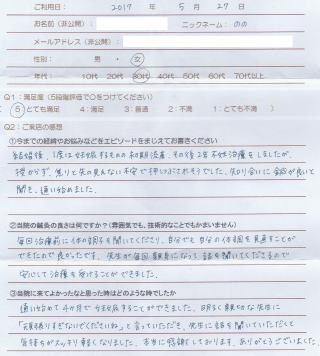 ご利用日： 2017 年 5 月 27 日
お名前(非公開)： ニックネーム：のの
メールアドレス(非公開)：
性別： 男 ・ 女
年代： 10代 20代 30代 40代 50代 60代 70代以上
Q1：満足度(5段階評価で○をつけてください)
5：とても満足 4：満足 3：普通 2：不満 1：とても不満
Q2：ご来店の感想
①今までの経緯やお悩みなどをエピソードをまじえてお書きください
結婚後、1度は妊娠するものの初期流産、その後2年不妊治療をしましたが、
授からず、焦りと先の見えない不安で押しつぶされそうでした。知り合いに鍼灸が良いと
聞き、通い始めました。
②当院の鍼灸の良さは何ですか？(雰囲気でも、技術的なことでもかまいません)
毎回治療前に体の調子を聞いてくださり、自分でも自分の体調を見直すことが
できたので良かったです。先生が毎回親身になって話を聞いてくださるので
安心して治療を受けることができました。
③当院に来てよかったなと思った時はどのような時でしたか
通い始めて4ヶ月で妊娠することができました。明るく親切な先生に
「頑張りすぎないでくださいね」と言っていただき、先生に話を聞いていただいて
気持ちがスッキリ軽くなりました。本当に感謝しております。ありがとうございました。